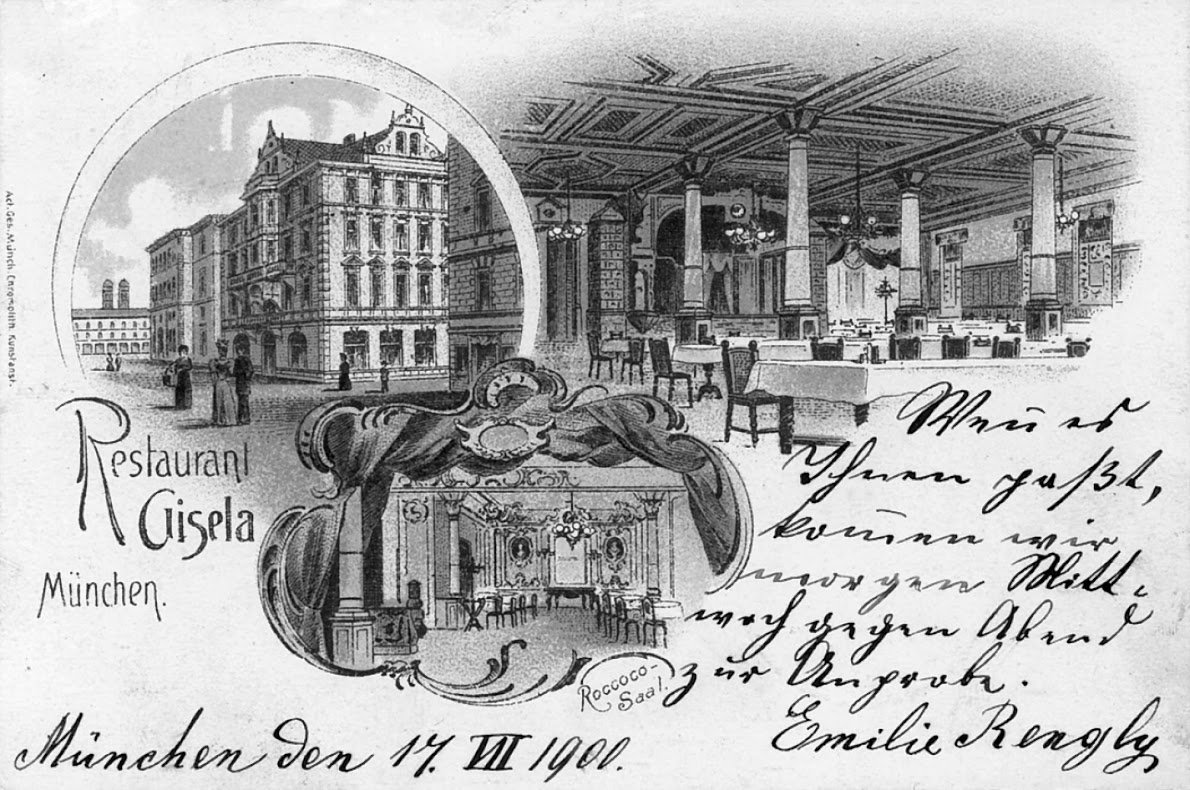 Act.Ges. Münch. Chromolith. Kunstanst.
Restaurant
Gisela
München.
Roccoco-
Saal.
Wen̄ es
Ihnen paßt,
kom̄en wir
morgen Mitt-
woch gegen Abend
zur Anprobe.
Emilie Rengly
München den 17. VII 1900.